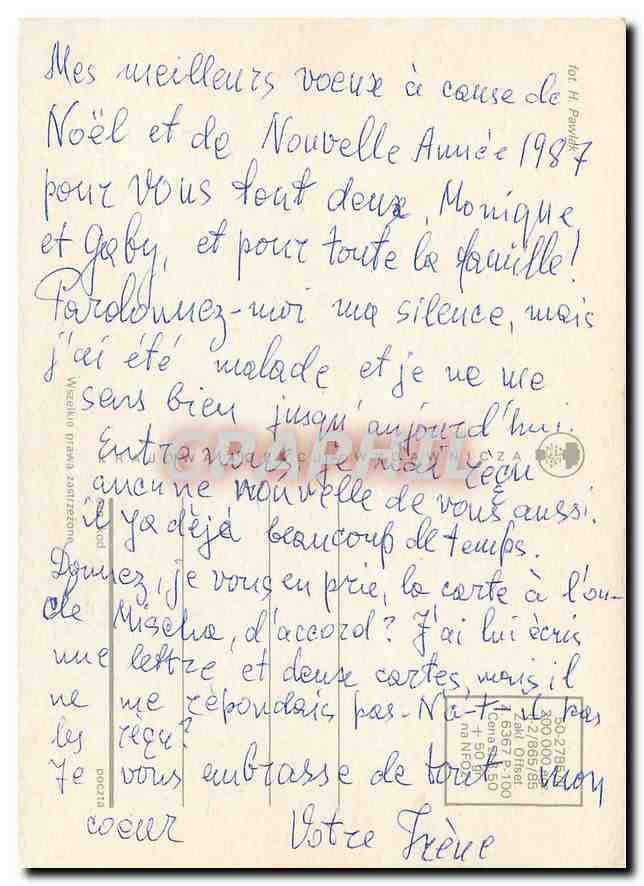 Mes meilleurs voeux à cause de
Noël et de Nouvelle Année 1987
pour vous tout deux, Monique
et Gaby, et pour toute la famille!
Pardonnez-moi ma silence, mais
j'ai été malade et je ne me
sens bien jusqu'aujourd'hui.
Entre nous, je n'ai reçu
aucune nouvelle de vous aussi.
il ya déjà beaucoup de temps.
Donnez, je vous en prie, la carte à l'on-
cle Mischa, d'accord? J'ai lui écris
une lettre et deux cartes, mais il
ne me répondais pas - N'a-t-il pas
les réçu?
Je vous embrasse de tout mon
coeur Votre Irène
fot. H. Pawlak
Wszelkie prawa zastrzeżone
poczta
Zakł. Offset.
+ 50 gr
na NFOZ